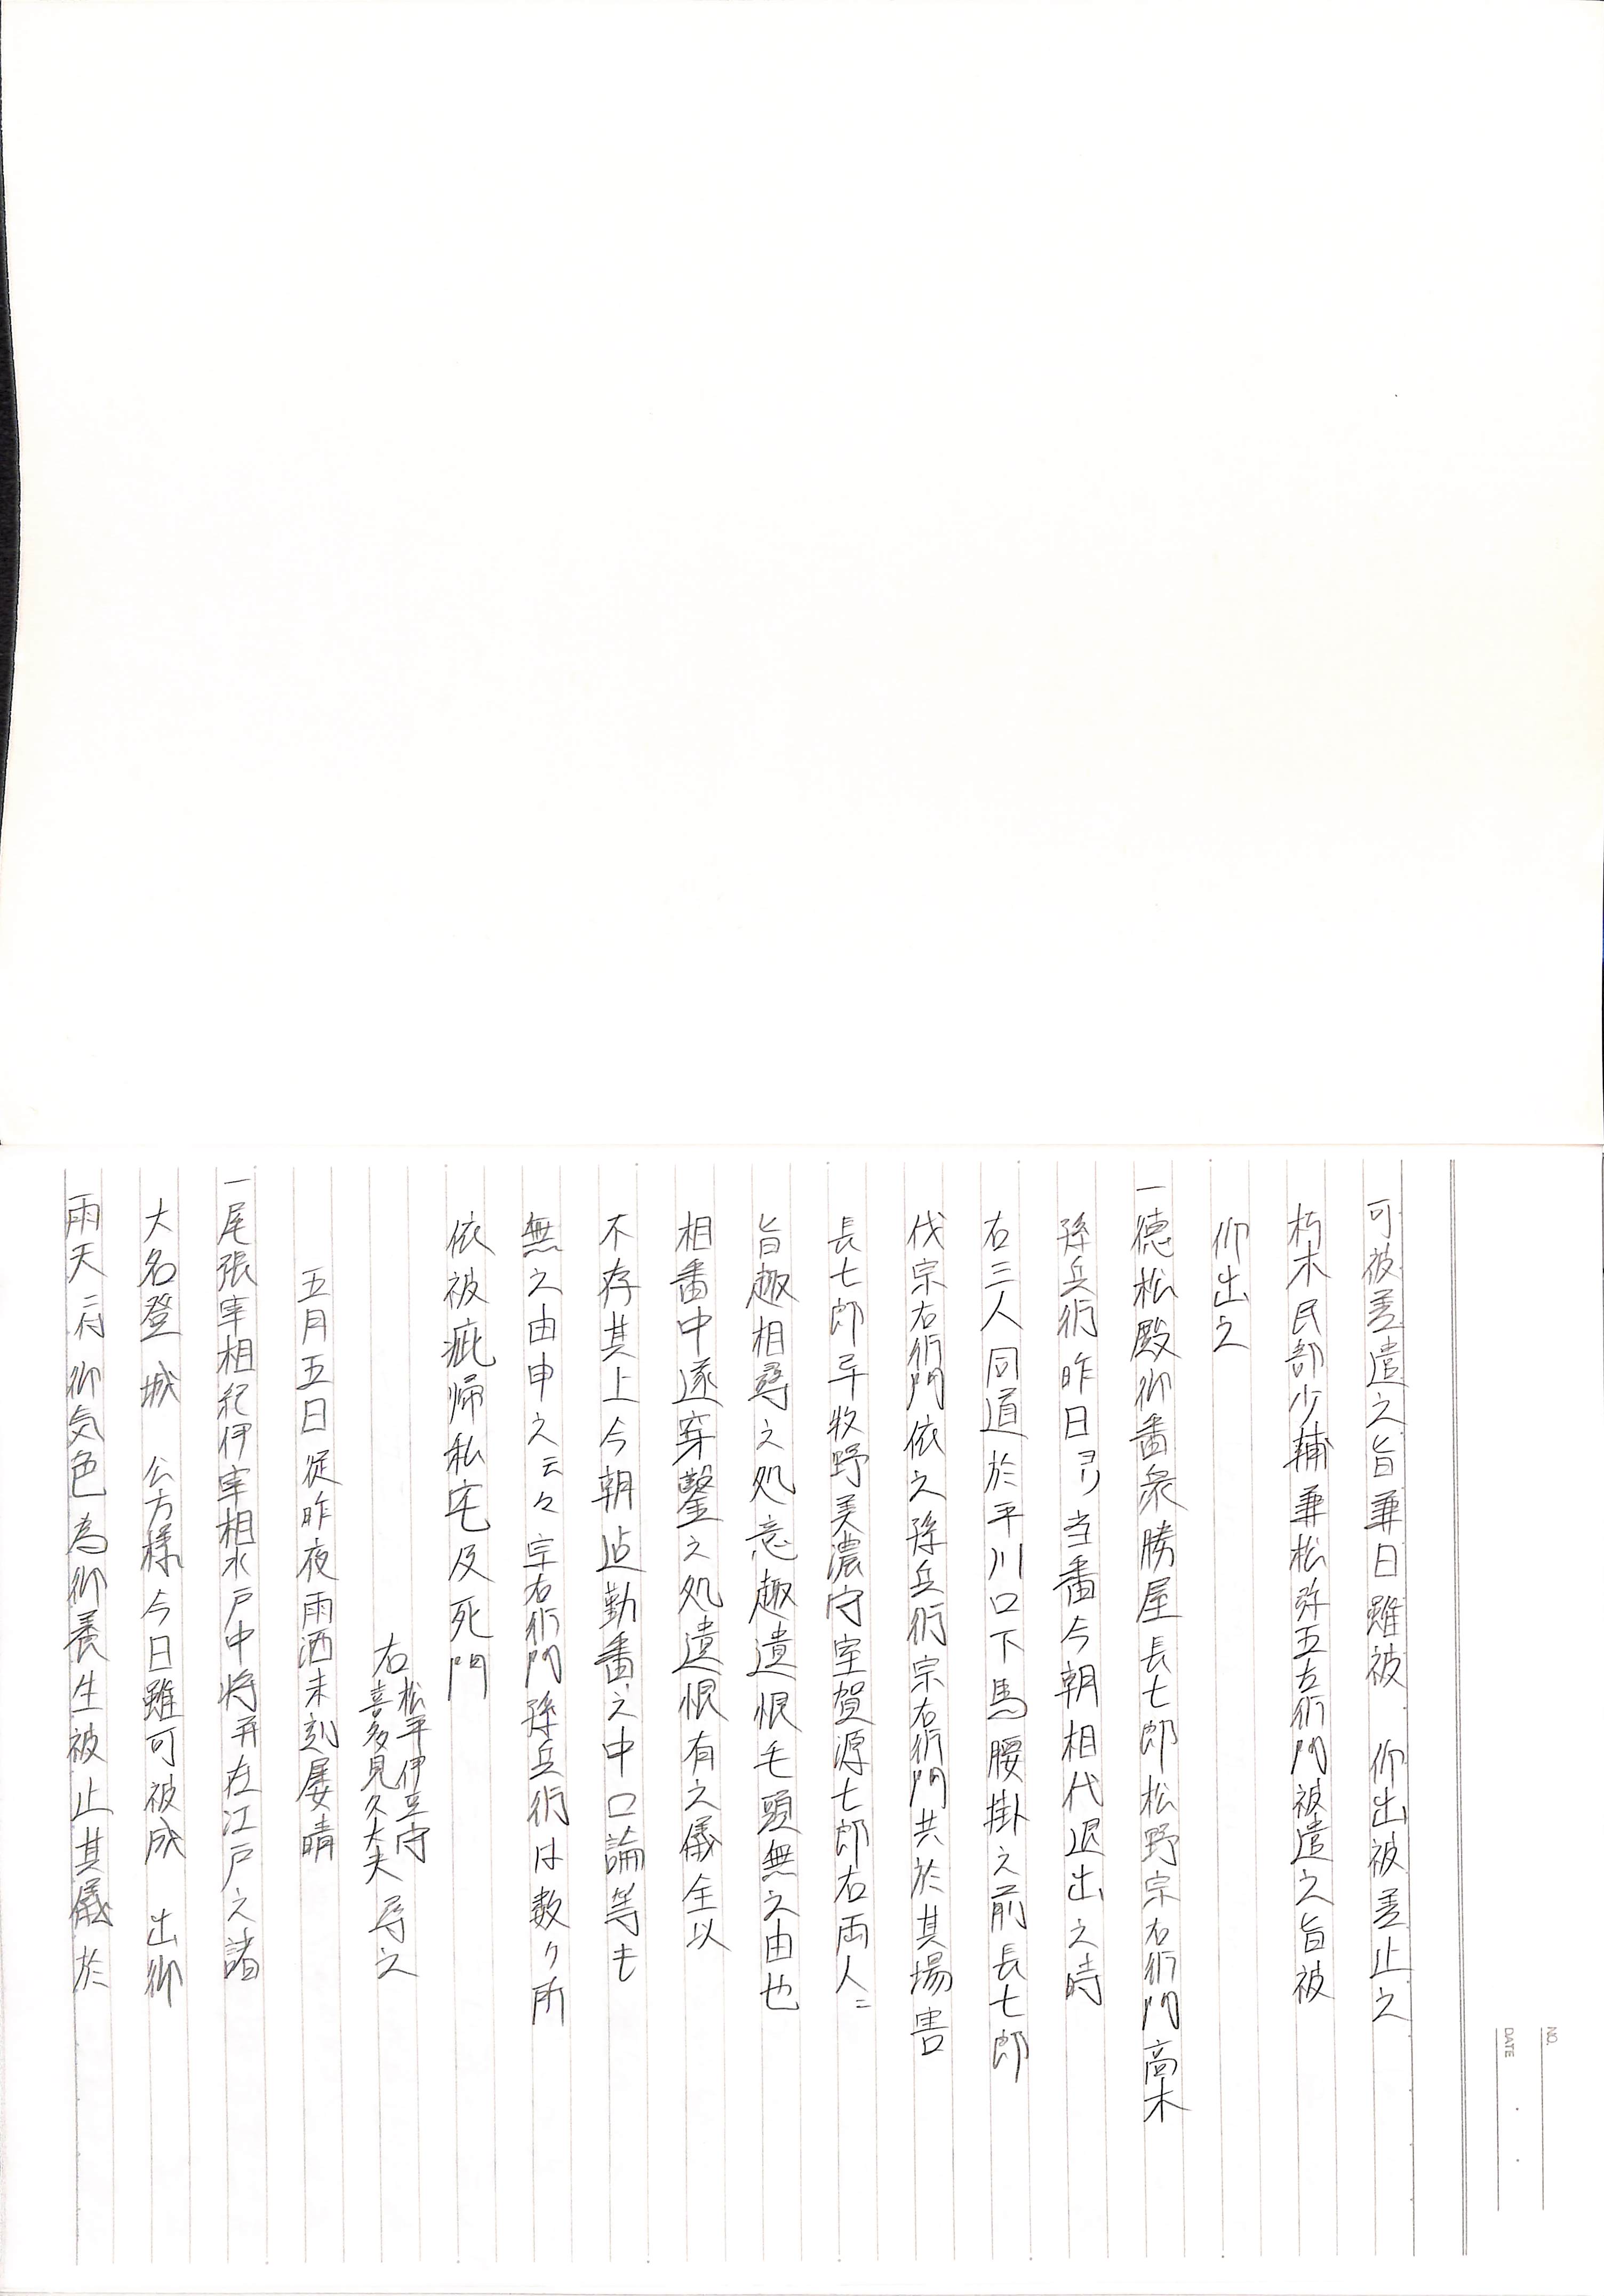 NO.
DATE
可被差遣之旨兼日雖被　仰出被差止之
朽木民部少輔兼松弥五左衛門被遣之旨被
仰出之
一徳松殿御番衆勝屋長七郎松野宗右衛門高木
孫兵衛昨日ヨリ当番今朝相代退出之時
右三人同道於平川口下馬腰掛之前長七郎
伐宗右衛門依之孫兵衛宗右衛門共於其場害
長七郎畢牧野美濃守室賀源七郎右両人ニ
旨趣相尋之処意趣遺恨毛頭無之由也
相番中遂穿鑿之処遺恨有之儀全以
不存其上今朝迠勤番之中口論等も
無之由申之云々宗右衛門孫兵衛は数ヶ所
依被疵帰私宅及死門
右松平伊豆守
喜多見久大夫　尋之
五月五日従昨夜雨洒未刻屡晴
一尾張宰相紀伊宰相水戸中将并在江戸之諸
大名登　城　公方様今日雖可被成　出御
雨天ニ付御気色為御養生被止其儀於